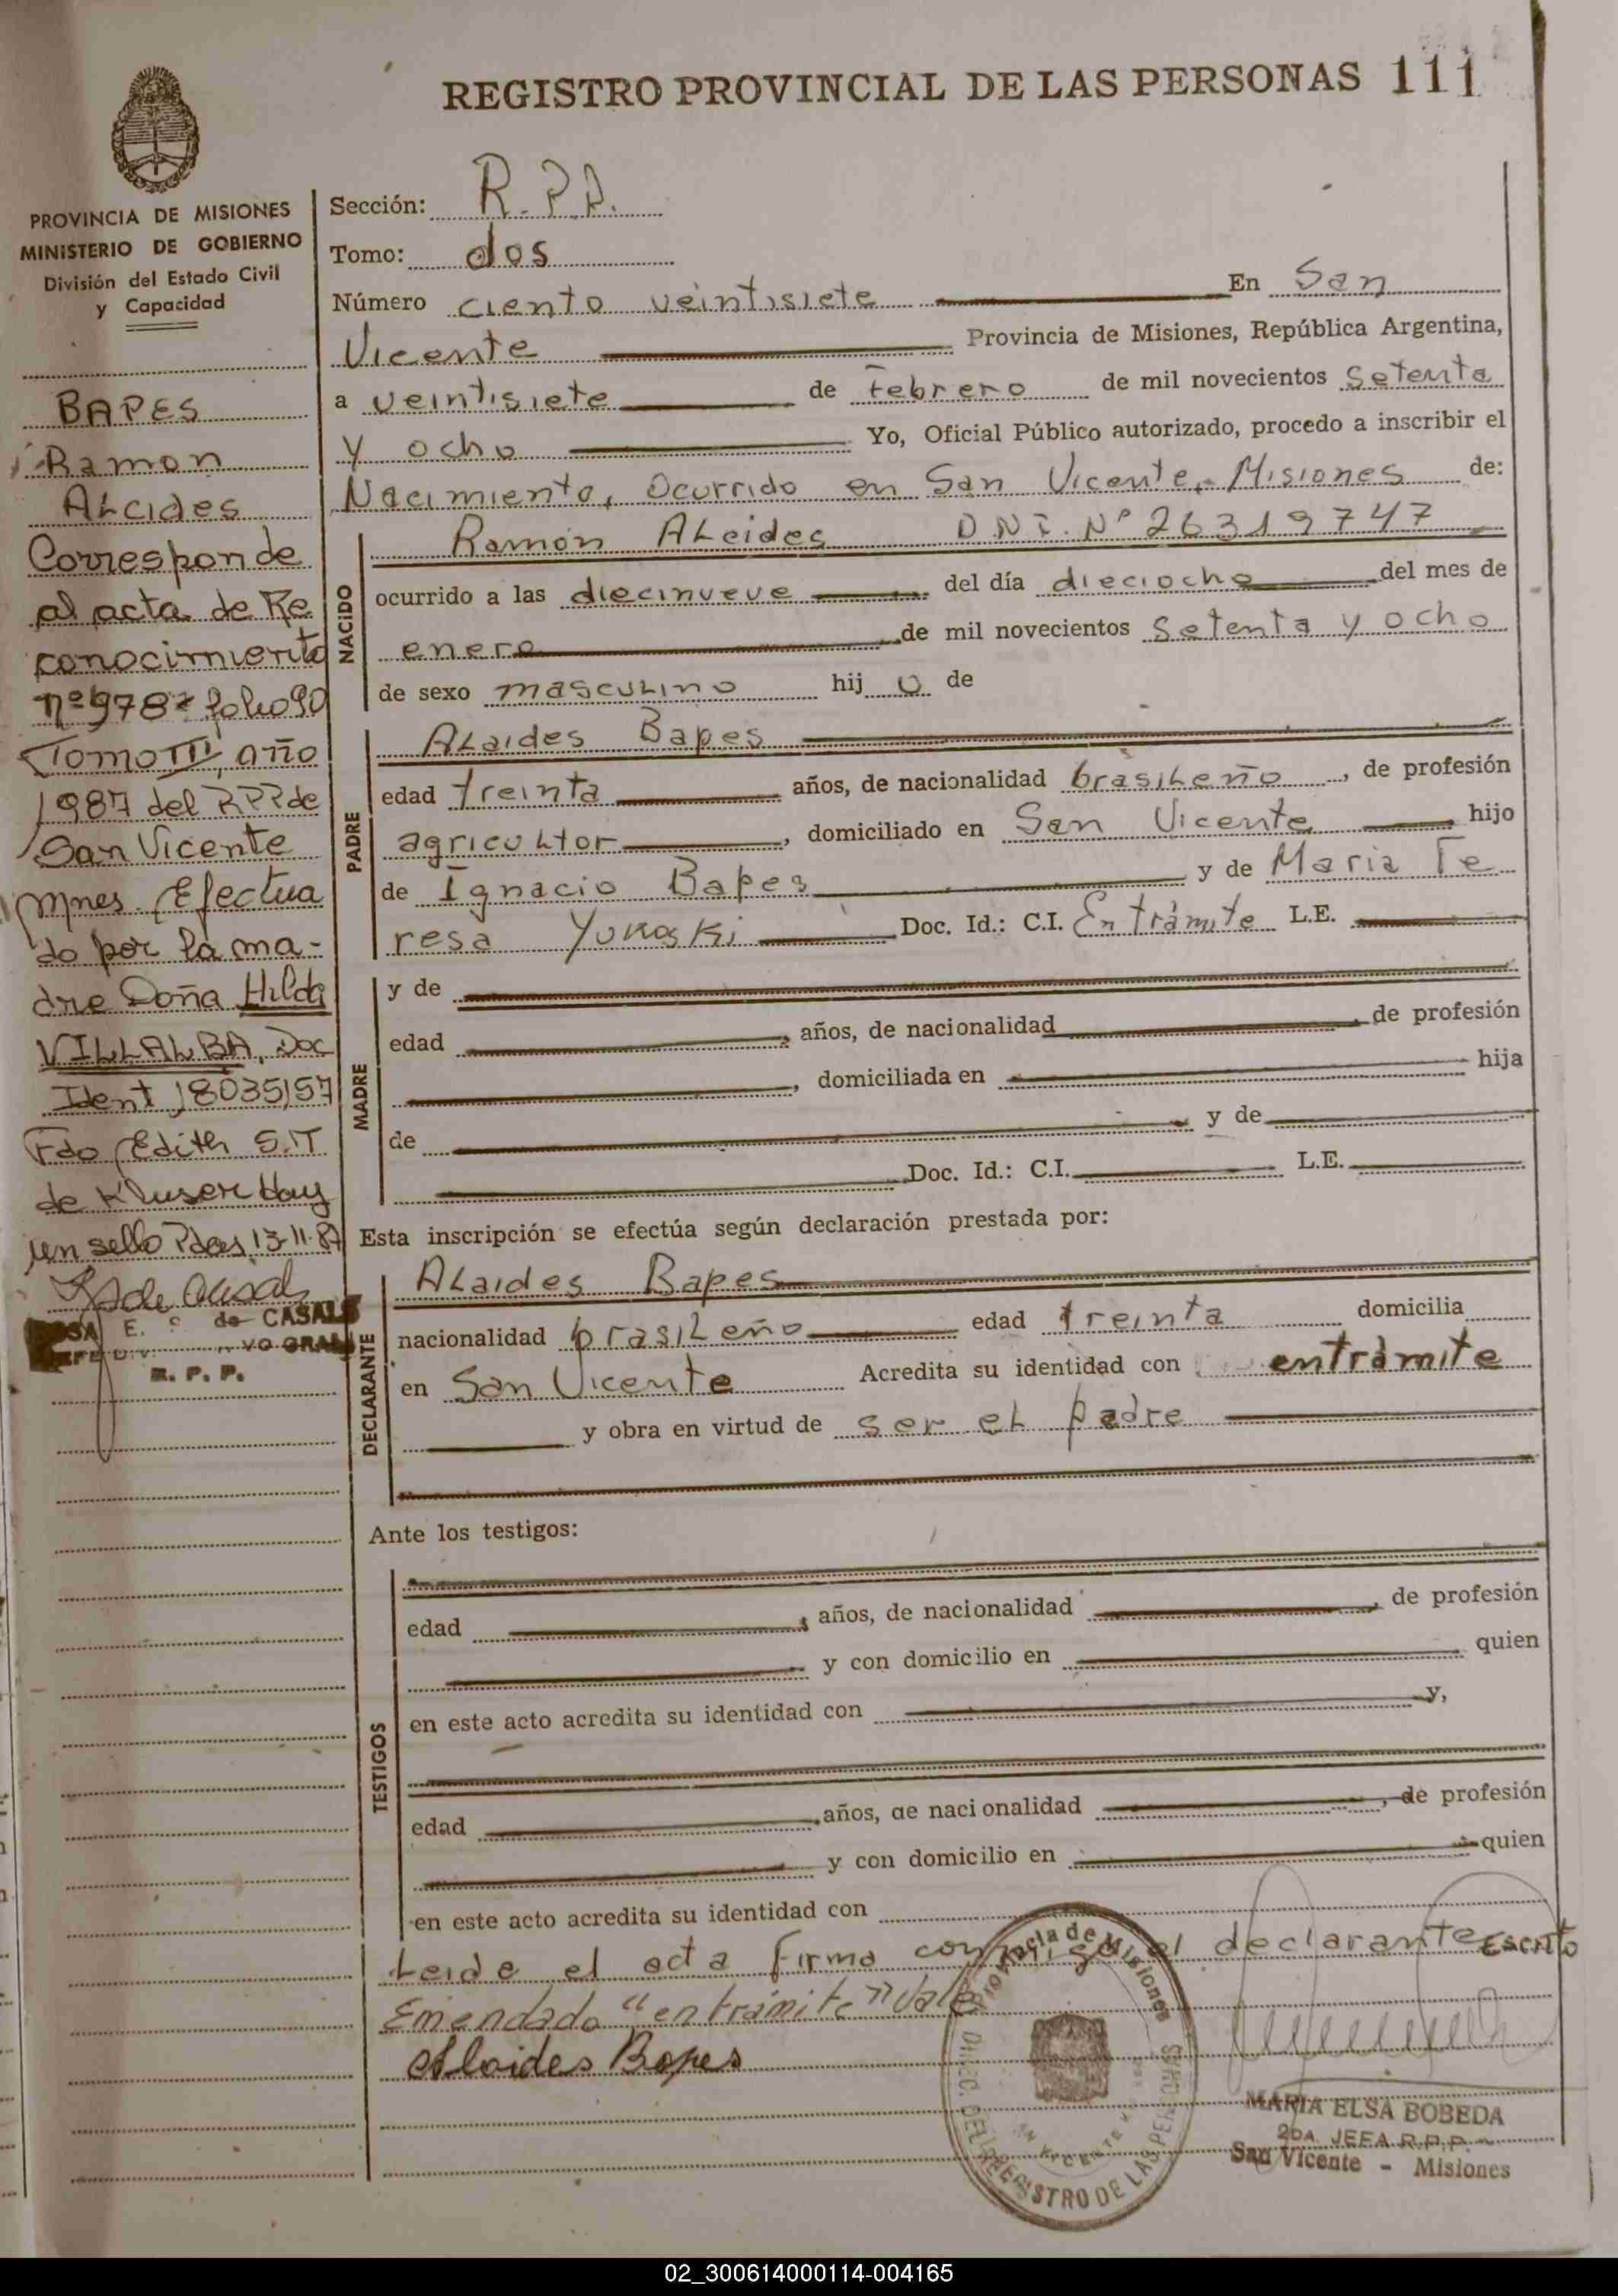 REGISTRO PROVINCIAL DE LAS PERSONAS 111
PROVINCIA DE MISIONES
MINISTERIO DE GOBIERNO
División del Estado Civil
y Capacidad
BAPES
Ramon
ALcides
Corresponde
al acta de Re
conocimiento
nº 978 folio 90
Tomo III, año
1987 del RPP de
San Vicente
Mnes. Efectua
do por la ma-
dre Doña Hilda
VILLALBA, Doc
Ident 18035157
Fdo Edith S.T
de Kluser Hay
un sello Pdas 13-11-87
E. de CASALS
R. P. P.
Sección: R.P.P.
Tomo: dos
Número ciento veintisiete En San
Vicente Provincia de Misiones, República Argentina,
a veintisiete de Febrero de mil novecientos setenta
y ocho Yo, Oficial Público autorizado, procedo a inscribir el
Nacimiento, Ocurrido en San Vicente, Misiones de:
NACIDO
Ramón ALcides D.N.I. Nº 26319747
ocurrido a las diecinueve del día dieciocho del mes de
enero de mil novecientos setenta y ocho
de sexo masculino hij o de
PADRE
ALaides Bapes
edad treinta años, de nacionalidad brasileño, de profesión
agricultor, domiciliado en San Vicente hijo
de Ignacio Bapes y de Maria Te
resa Yukoski Doc. Id.: C.I. En trámite L.E.
MADRE
y de
edad , años, de nacionalidad de profesión
, domiciliada en hija
de y de
Doc. Id.: C.I. L.E.
Esta inscripción se efectúa según declaración prestada por:
DECLARANTE
ALaides Bapes
nacionalidad brasileño edad treinta domicilia
en San Vicente Acredita su identidad con entrámite
y obra en virtud de ser el padre
Ante los testigos:
TESTIGOS
edad , años, de nacionalidad , de profesión
y con domicilio en quien
en este acto acredita su identidad con y,
edad , años, de nacionalidad , de profesión
y con domicilio en quien
en este acto acredita su identidad con
Leida el acta firma conmigo el declarante Escrito
Emendado "entrámite" Vale
Alaides Bapes
Provincia de Misiones
DIREC. DEL REGISTRO DE LAS PERSONAS
MARIA ELSA BOBEDA
2DA. JEFA R.P.P.
San Vicente - Misiones
02_300614000114-004165